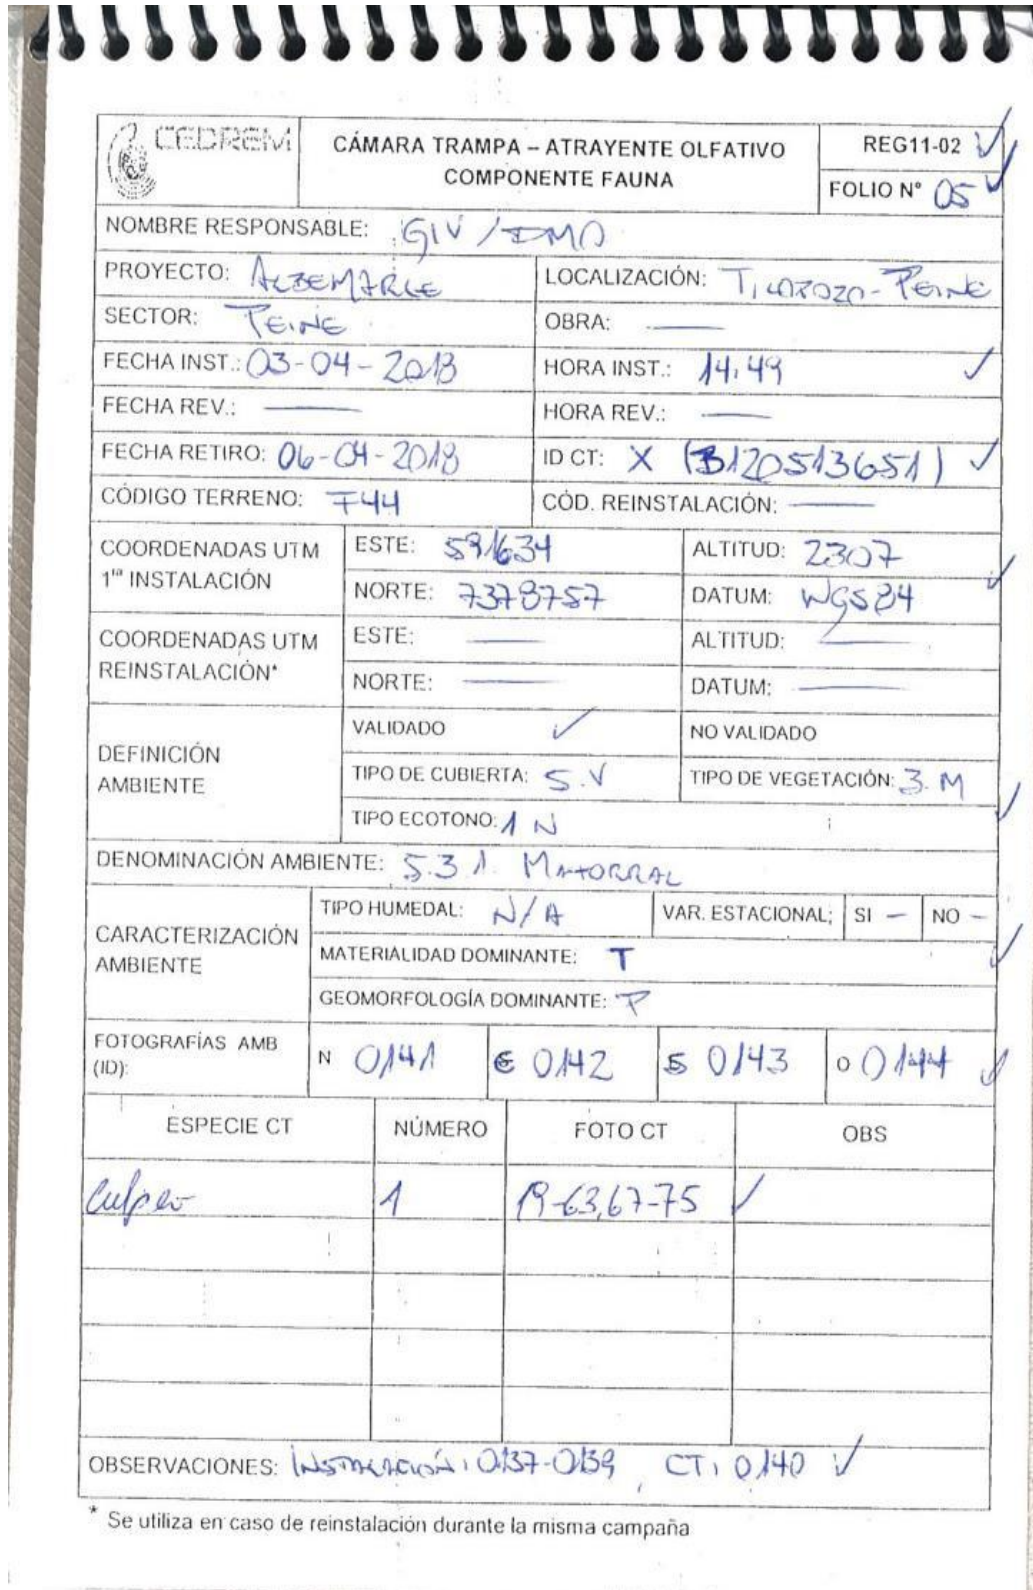 CEDREM
CÁMARA TRAMPA – ATRAYENTE OLFATIVO
COMPONENTE FAUNA
REG11-02 ✓
FOLIO N° 05 ✓
NOMBRE RESPONSABLE: GIV /
PROYECTO: ALBEMARLE
LOCALIZACIÓN: TILOPOZO-PEINE
SECTOR: PEINE
OBRA: —
FECHA INST.: 03-04-2018
HORA INST.: 14:49 ✓
FECHA REV.: —
HORA REV.: —
FECHA RETIRO: 06-04-2018
ID CT: X (B120513651) ✓
CÓDIGO TERRENO: F44
CÓD. REINSTALACIÓN: —
COORDENADAS UTM
1ra INSTALACIÓN
ESTE: 591634
ALTITUD: 2307 ✓
NORTE: 7378757
DATUM: WGS84
COORDENADAS UTM
REINSTALACIÓN*
ESTE: —
ALTITUD: —
NORTE: —
DATUM: —
DEFINICIÓN
AMBIENTE
VALIDADO ✓
NO VALIDADO
TIPO DE CUBIERTA: 5.V
TIPO DE VEGETACIÓN: 3.M
TIPO ECOTONO: 1 N ✓
DENOMINACIÓN AMBIENTE: 5.3 1. MATORRAL
CARACTERIZACIÓN
AMBIENTE
TIPO HUMEDAL: N/A
VAR. ESTACIONAL; SI – NO –
MATERIALIDAD DOMINANTE: T ✓
GEOMORFOLOGÍA DOMINANTE: P
FOTOGRAFÍAS AMB
(ID):
N 0141 E 0142 S 0143 O 0144 ✓
ESPECIE CT NÚMERO FOTO CT OBS
Culpeo 1 19-63,67-75 ✓
OBSERVACIONES: INSTALACIÓN: 0137-0139, CT: 0140 ✓
* Se utiliza en caso de reinstalación durante la misma campaña